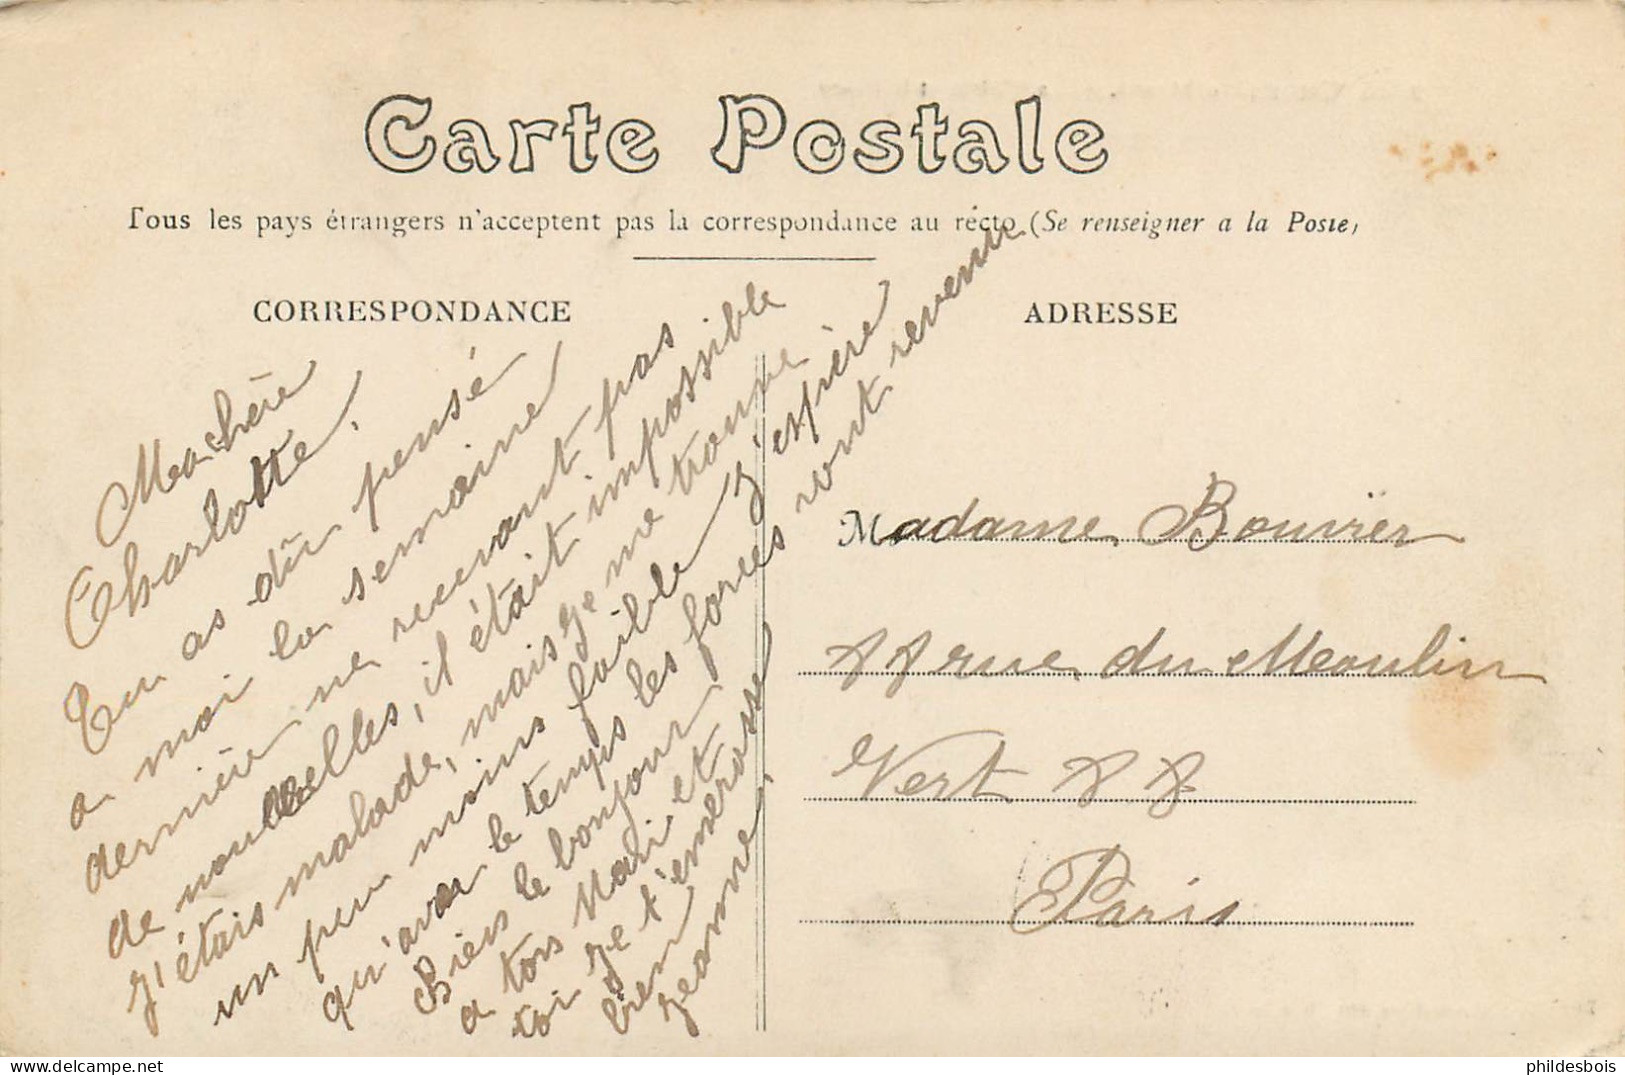 Carte Postale
Tous les pays étrangers n'acceptent pas la correspondance au recto (Se renseigner a la Poste)
CORRESPONDANCE
ADRESSE
Ma chère
Charlotte.
Tu as dû pensé
a moi la semaine
dernière ne recevant pas
de nouvelles, il était impossible
j'étais malade, mais je me trouve
un peu moins faible j'espère
qu'avec le temps les forces vont revenir
Biens le bonjour
a ton Mari et
toi je t'embrasse
bien
Jeanne.
Madame Bouvier
11 rue du Moulin
Vert 11
Paris
phildesbois